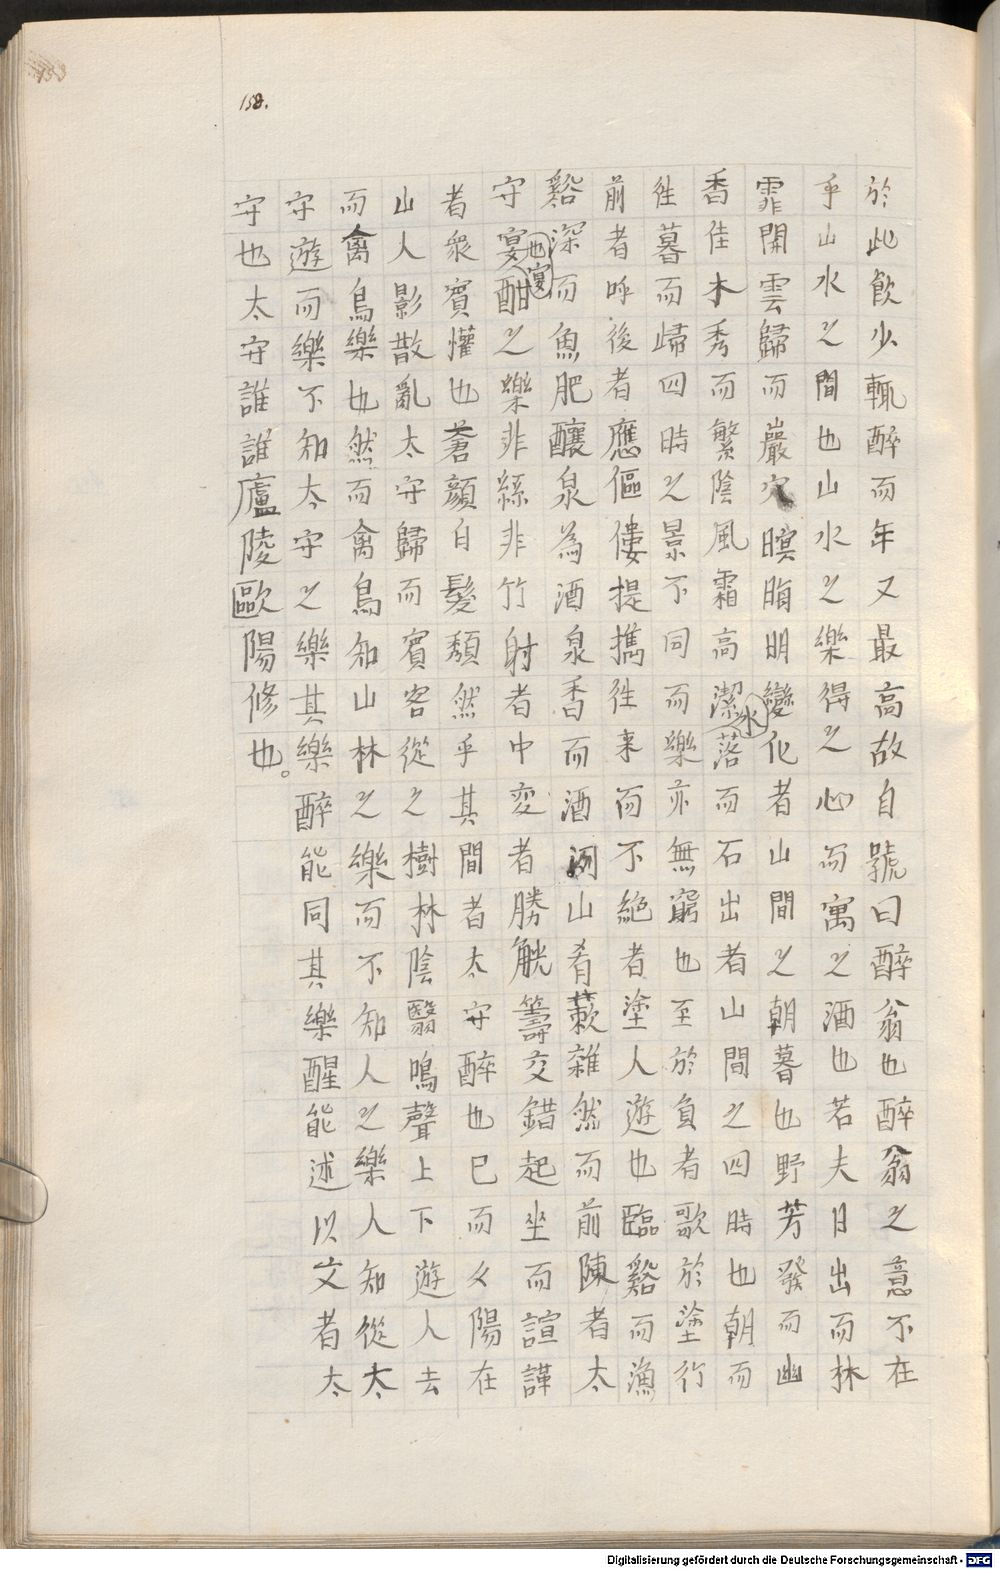 158.
於此飲少輒醉而年又最高故自號曰醉翁也醉翁之意不在
乎山水之間也山水之樂得之心而寓之酒也若夫日出而林
霏開雲歸而巖穴暝晦明變化者山間之朝暮也野芳發而幽
香佳木秀而繁陰風霜高潔水落而石出者山間之四時也朝而
徃暮而歸四時之景不同而樂亦無窮也至於負者歌於塗行
前者呼後者應傴僂提攜徃来而不絶者塗人遊也臨谿而漁
谿深而魚肥釀泉為酒泉香而酒洌山肴蔌雜然而前陳者太
守宴也宴酣之樂非絲非竹射者中変者勝觥籌交錯起坐而諠譁
者衆賓懽也蒼顔白髮頹然乎其間者太守醉也已而夕陽在
山人影散亂太守歸而賓客從之樹林陰翳鳴聲上下遊人去
而禽鳥樂也然而禽鳥知山林之樂而不知人之樂人知從太
守遊而樂不知太守之樂其樂醉能同其樂醒能述以文者太
守也太守誰誰廬陵歐陽修也。
Digitalisierung gefördert durch die Deutsche Forschungsgemeinschaft - DFG